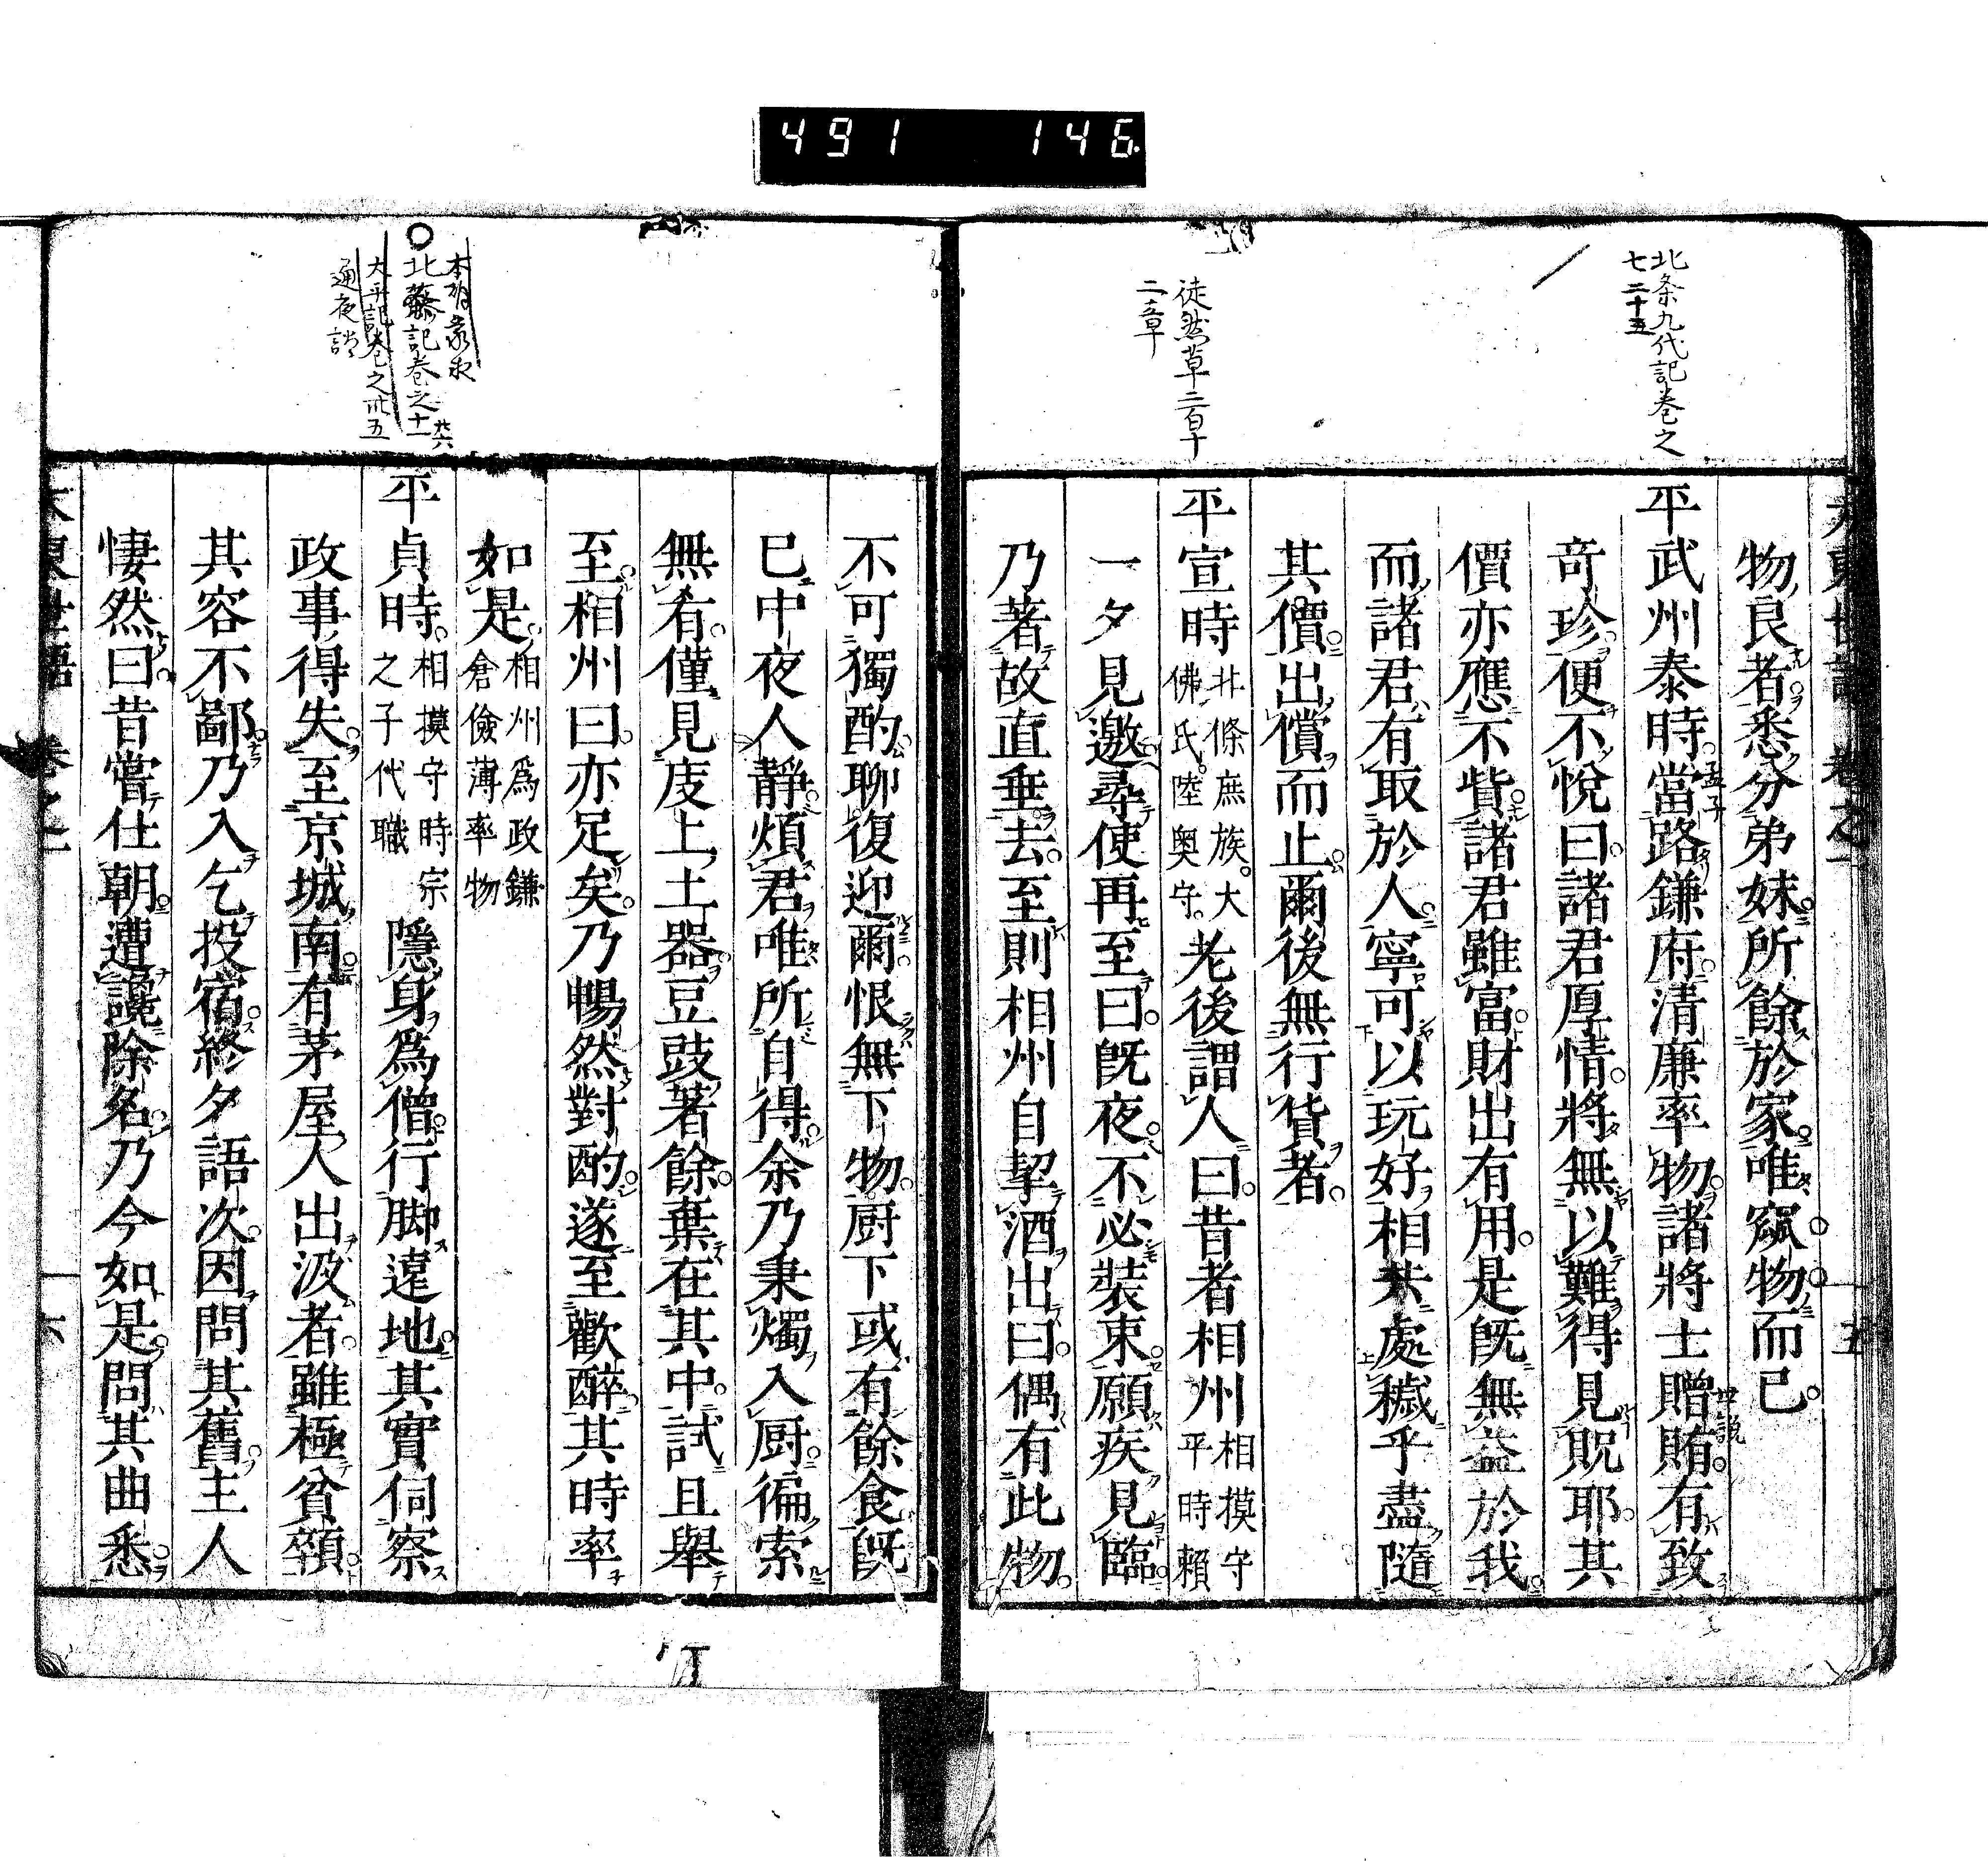 491 146
北条九代記巻之
七 二十五
徒然草二百十
二章
大東世語 卷之一 十五
物良者悉分弟妹所餘於家唯窳物而已
平武州泰時當路鎌府清廉率物諸將士贈賄有致
奇珍便不悅曰諸君厚情將無以難得見貺耶其
價亦應不貲諸君雖富財出有用是既無益於我
而諸君有取於人寧可以玩好相共處穢乎盡隨
其價出償而止爾後無行貨者
平宣時北條庶族大佛氏陸奧守老後謂人曰昔者相州相摸守平時賴
一夕見邀尋使再至曰既夜不必裝束願疾見臨
乃著故直垂去至則相州自挈酒出曰偶有此物
不可獨酌聊復迎爾恨無下物厨下或有餘食既
已中夜人靜煩君唯所自得余乃秉燭入厨徧索
無有僅見庋上土器豆豉著餘棄在其中試且舉
至相州曰亦足矣乃暢然對酌遂至歡醉其時率
如是相州爲政鎌倉儉薄率物
平貞時相摸守時宗之子代職隱身爲僧行脚遠地其實伺察
政事得失至京城南有茅屋人出汲者雖極貧顇
其容不鄙乃入乞投宿終夕語次因問其舊主人
悽然曰昔嘗仕朝遭讒除名乃今如是問其曲悉
大東世語 卷之一 十六
北藤記巻之十一
太平記巻之卅五
通夜譚